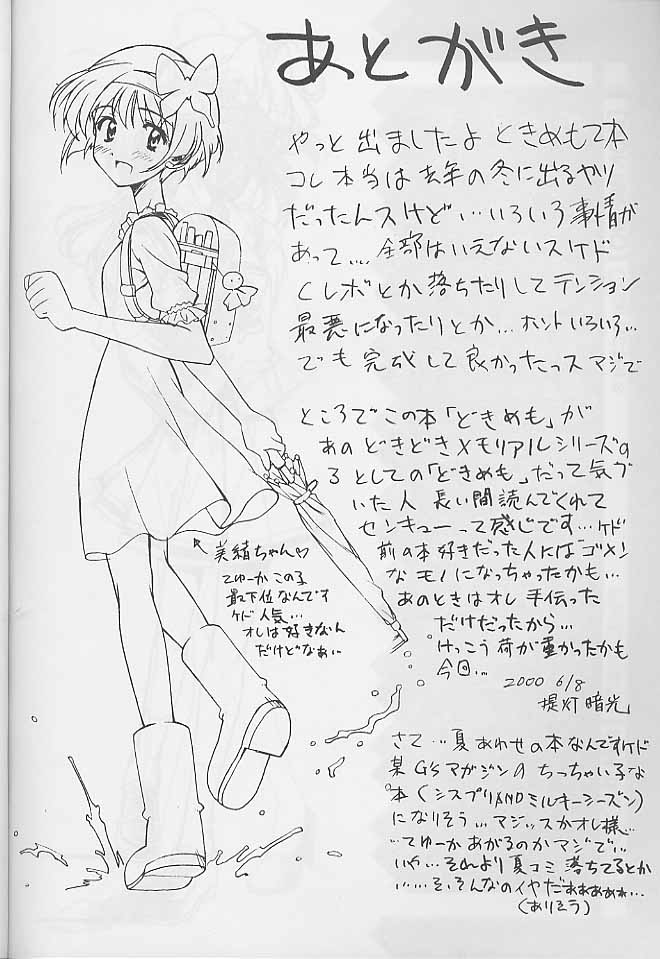 あとがき
やっと出ましたよ ときめもて本
コレ本当は去年の冬に出るやり
だったんスけど…いろいろ事情が
あって…. 全部はいえないスケド
Cレボとか落ちたりしてテンション
最悪になったりとか… ホントいろいろ…
でも完成して良かったっスマジで
ところでこの本「どきめも」が
あのどきどきメモリアルシリーズの
3としての「どきめも」だって気づ
いた人 長い間読んでくれて
センキューって感じです…ケド
前の本好きだった人には"ゴメン
なモノになっちゃったかも…
あのときはオレ手伝った
だけだったから…
けっこう荷が重かったかも
今回…
2000 6/8
提灯暗光
美緒ちゃん♡
てゆーかこの子
最下位なんです
ケド人気…
オレは好きなん
だけどなぁ…
さて…夏あわせの本なんですケド
某G'sマガジンのちっちゃい子な
本(シスプリANDミルキーシーズン)
になりそう… マジッスかオレ様…
…てゆーかあがるのかマジで…
いや…そんより夏コミ落ちてるとか
……そ、そんなのイヤだぁぁぁぁぁ…
(ありそう)